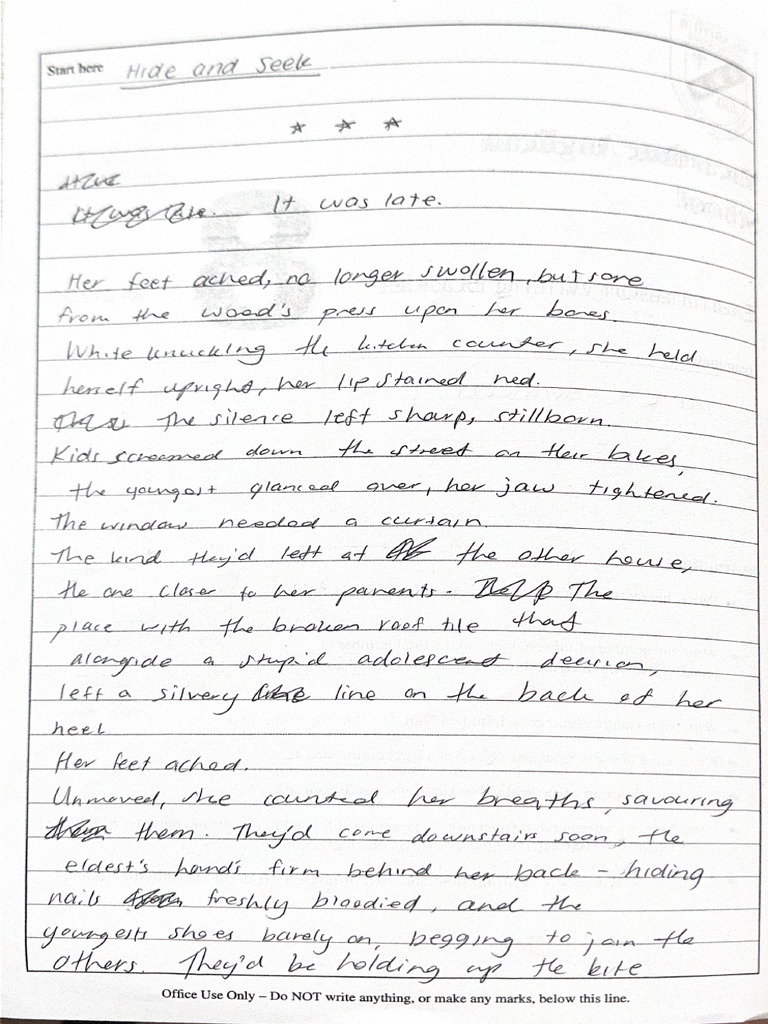 Start here Hide and Seek
* * *
It was late.
Her feet ached, no longer swollen, but sore
from the wood's press upon her bones.
White knuckling the kitchen counter, she held
herself upright, her lip stained red.
The silence left sharp, stillborn.
Kids screamed down the street on their bikes,
the youngest glanced over, her jaw tightened.
The window needed a curtain.
The kind they'd left at the other house,
the one closer to her parents. The
place with the broken roof tile that
alongside a stupid adolescent decision,
left a silvery line on the back of her
heel
Her feet ached.
Unmoved, she counted her breaths, savouring
them. They'd come downstairs soon, the
eldest's hands firm behind her back - hiding
nails freshly bloodied, and the
youngests shoes barely on, begging to join the
others. They'd be holding up the kite
Office Use Only – Do NOT write anything, or make any marks, below this line.